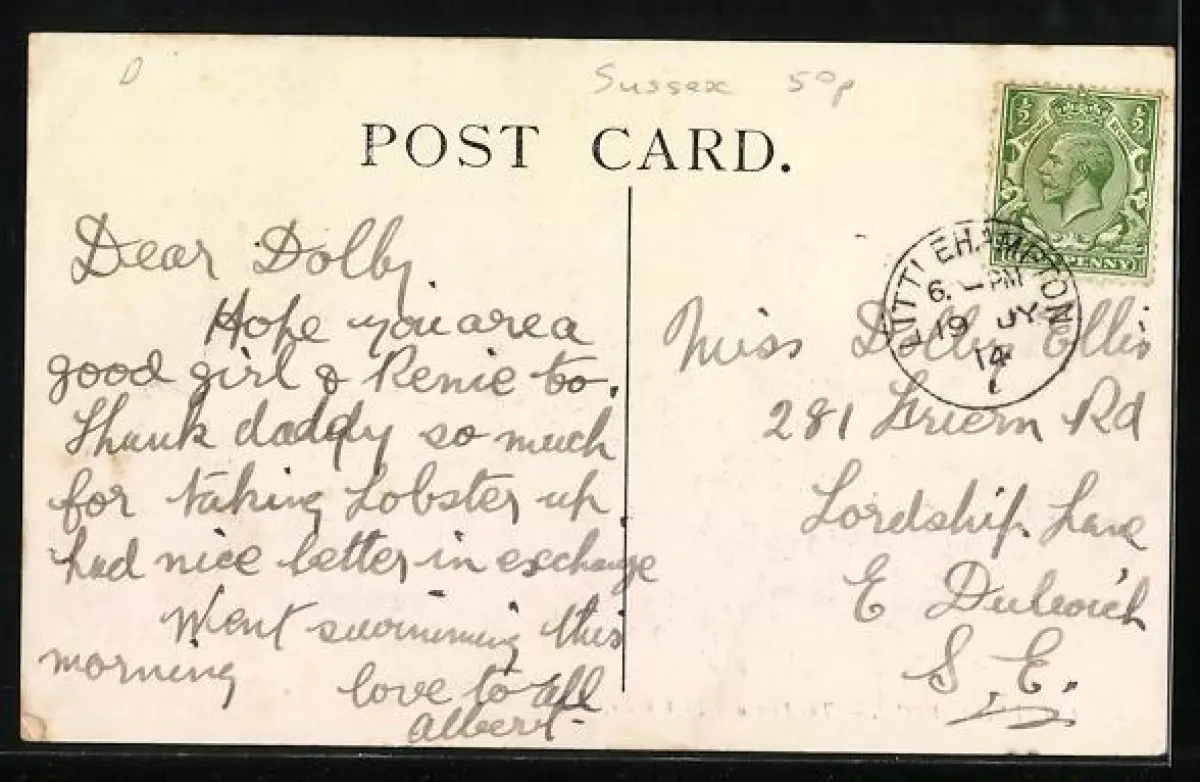 D
Sussex 50p
POST CARD.
½ ½
PENNY
LITTLEHAMPTON
6. - PM
19 JY
14
Dear Dolly
Hope you are a
good girl & Renie to.
Thank daddy so much
for taking Lobster up
had nice letter in exchange
Went swimming this
morning
love to all
Albert.
Miss Dolly Ellis
281 Friern Rd
Lordship Lane
E Dulwich
S.E.